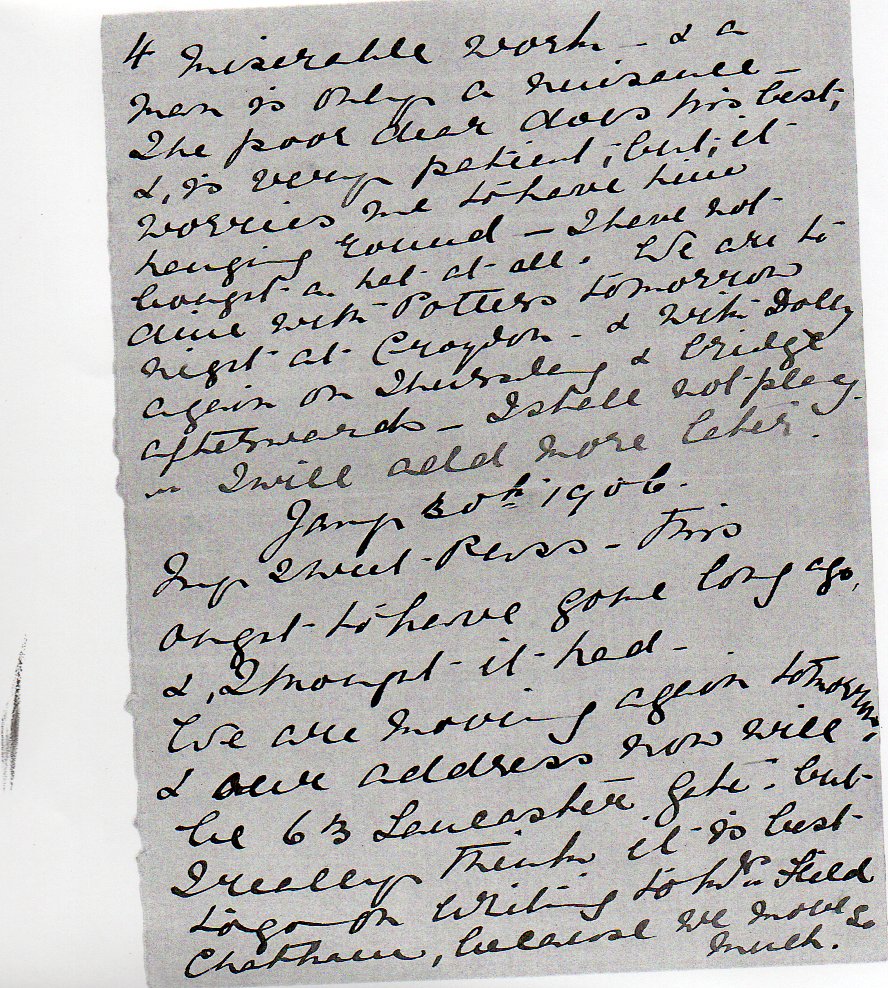 4 Miserable work - & a
man is only a nuisance -
The poor dear does his best,
&, is very patient, but, it
worries me to have him
hanging round - I have not
bought a hat at all. We are to
dine with Potters tomorrow
night at Croydon - & with Dolly
again on Thursday & bridge
afterwards - I shall not play.
I will add more later.
Jany 30th 1906.
My Sweet - This
ought to have gone long ago,
&, I thought it had -
We are moving again tomorrow,
& our address now will
be 63 Lancaster Gate. but
I really think it is best
to go on writing to Field
Chatham, because we move so
much.